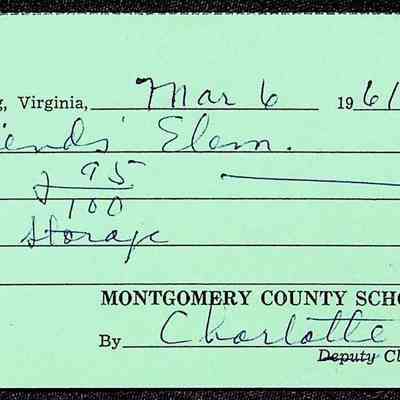 g, Virginia, Mar 6 1961
iends' Elem.
2 95/100
Storage
MONTGOMERY COUNTY SCHO
By Charlotte
Deputy Cl